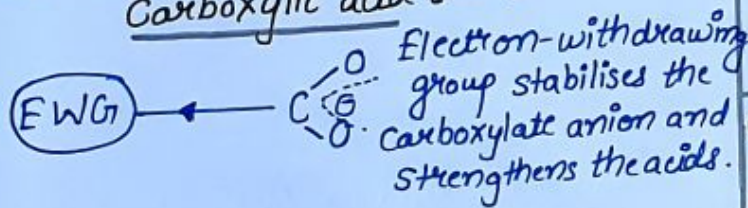 Carboxylic acid
Electron-withdrawing
group stabilises the
carboxylate anion and
strengthens the acids.
EWG
C
O
⊖
O